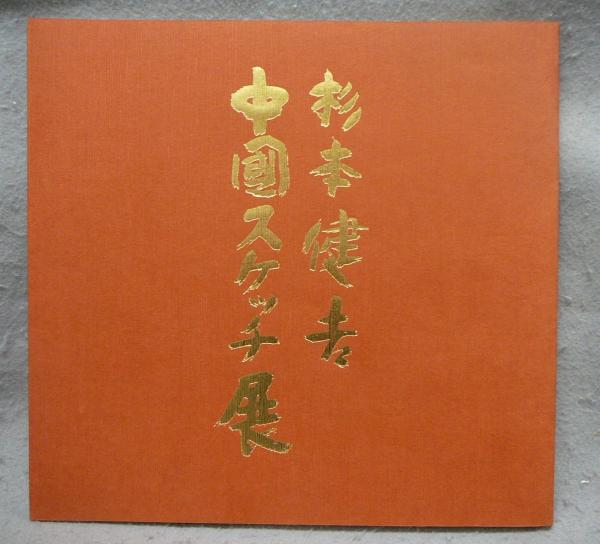 杉本健吉
中國スケッチ展